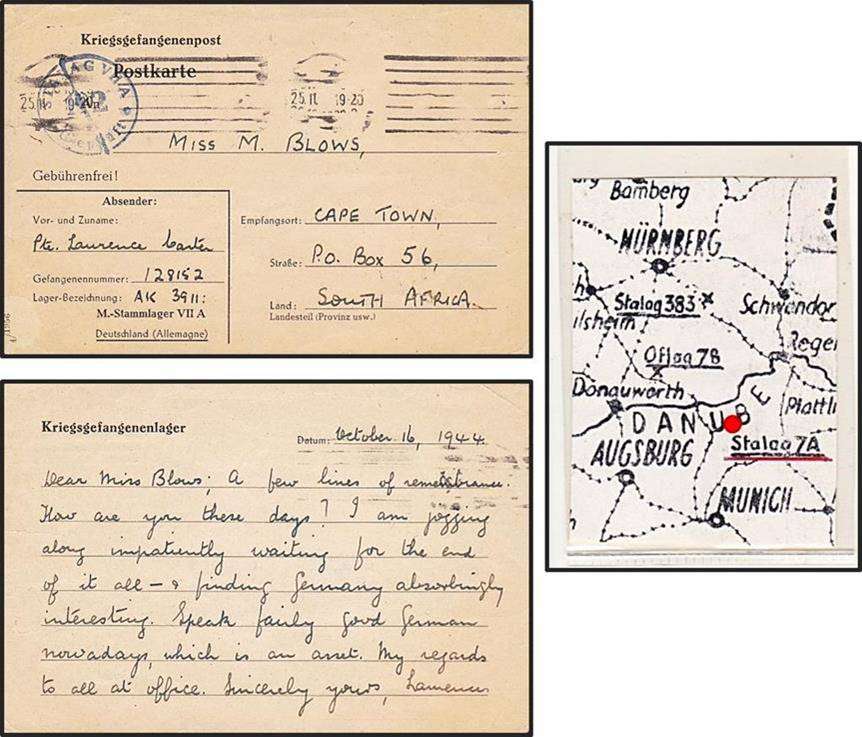 Kriegsgefangenenpost
Postkarte
25.11 19-20
MISS M. BLOWS,
Gebührenfrei!
Absender:
Vor- und Zuname:
Pte. Laurence Carter
Gefangenennummer: 128152
Lager-Bezeichnung: AK 3911:
M.-Stammlager VII A
Deutschland (Allemagne)
Empfangsort: CAPE TOWN,
Straße: P.O. Box 56,
Land: SOUTH AFRICA.
Landesteil (Provinz usw.)
Kriegsgefangenenlager
Datum: October 16, 1944.
Dear Miss Blows; A few lines of remembrance.
How are you these days? I am jogging
along impatiently waiting for the end
of it all – & finding Germany absorbingly
interesting. Speak fairly good German
nowadays, which is an asset. My regards
to all at office. Sincerely yours, Laurence
Bamberg
NÜRMBERG
Stalag 383
Schwandor
ilsheim
Oflag 7B
Regen
Donauwörth
DANUBE
Plattli
AUGSBURG
Stalag 7A
MUNICH